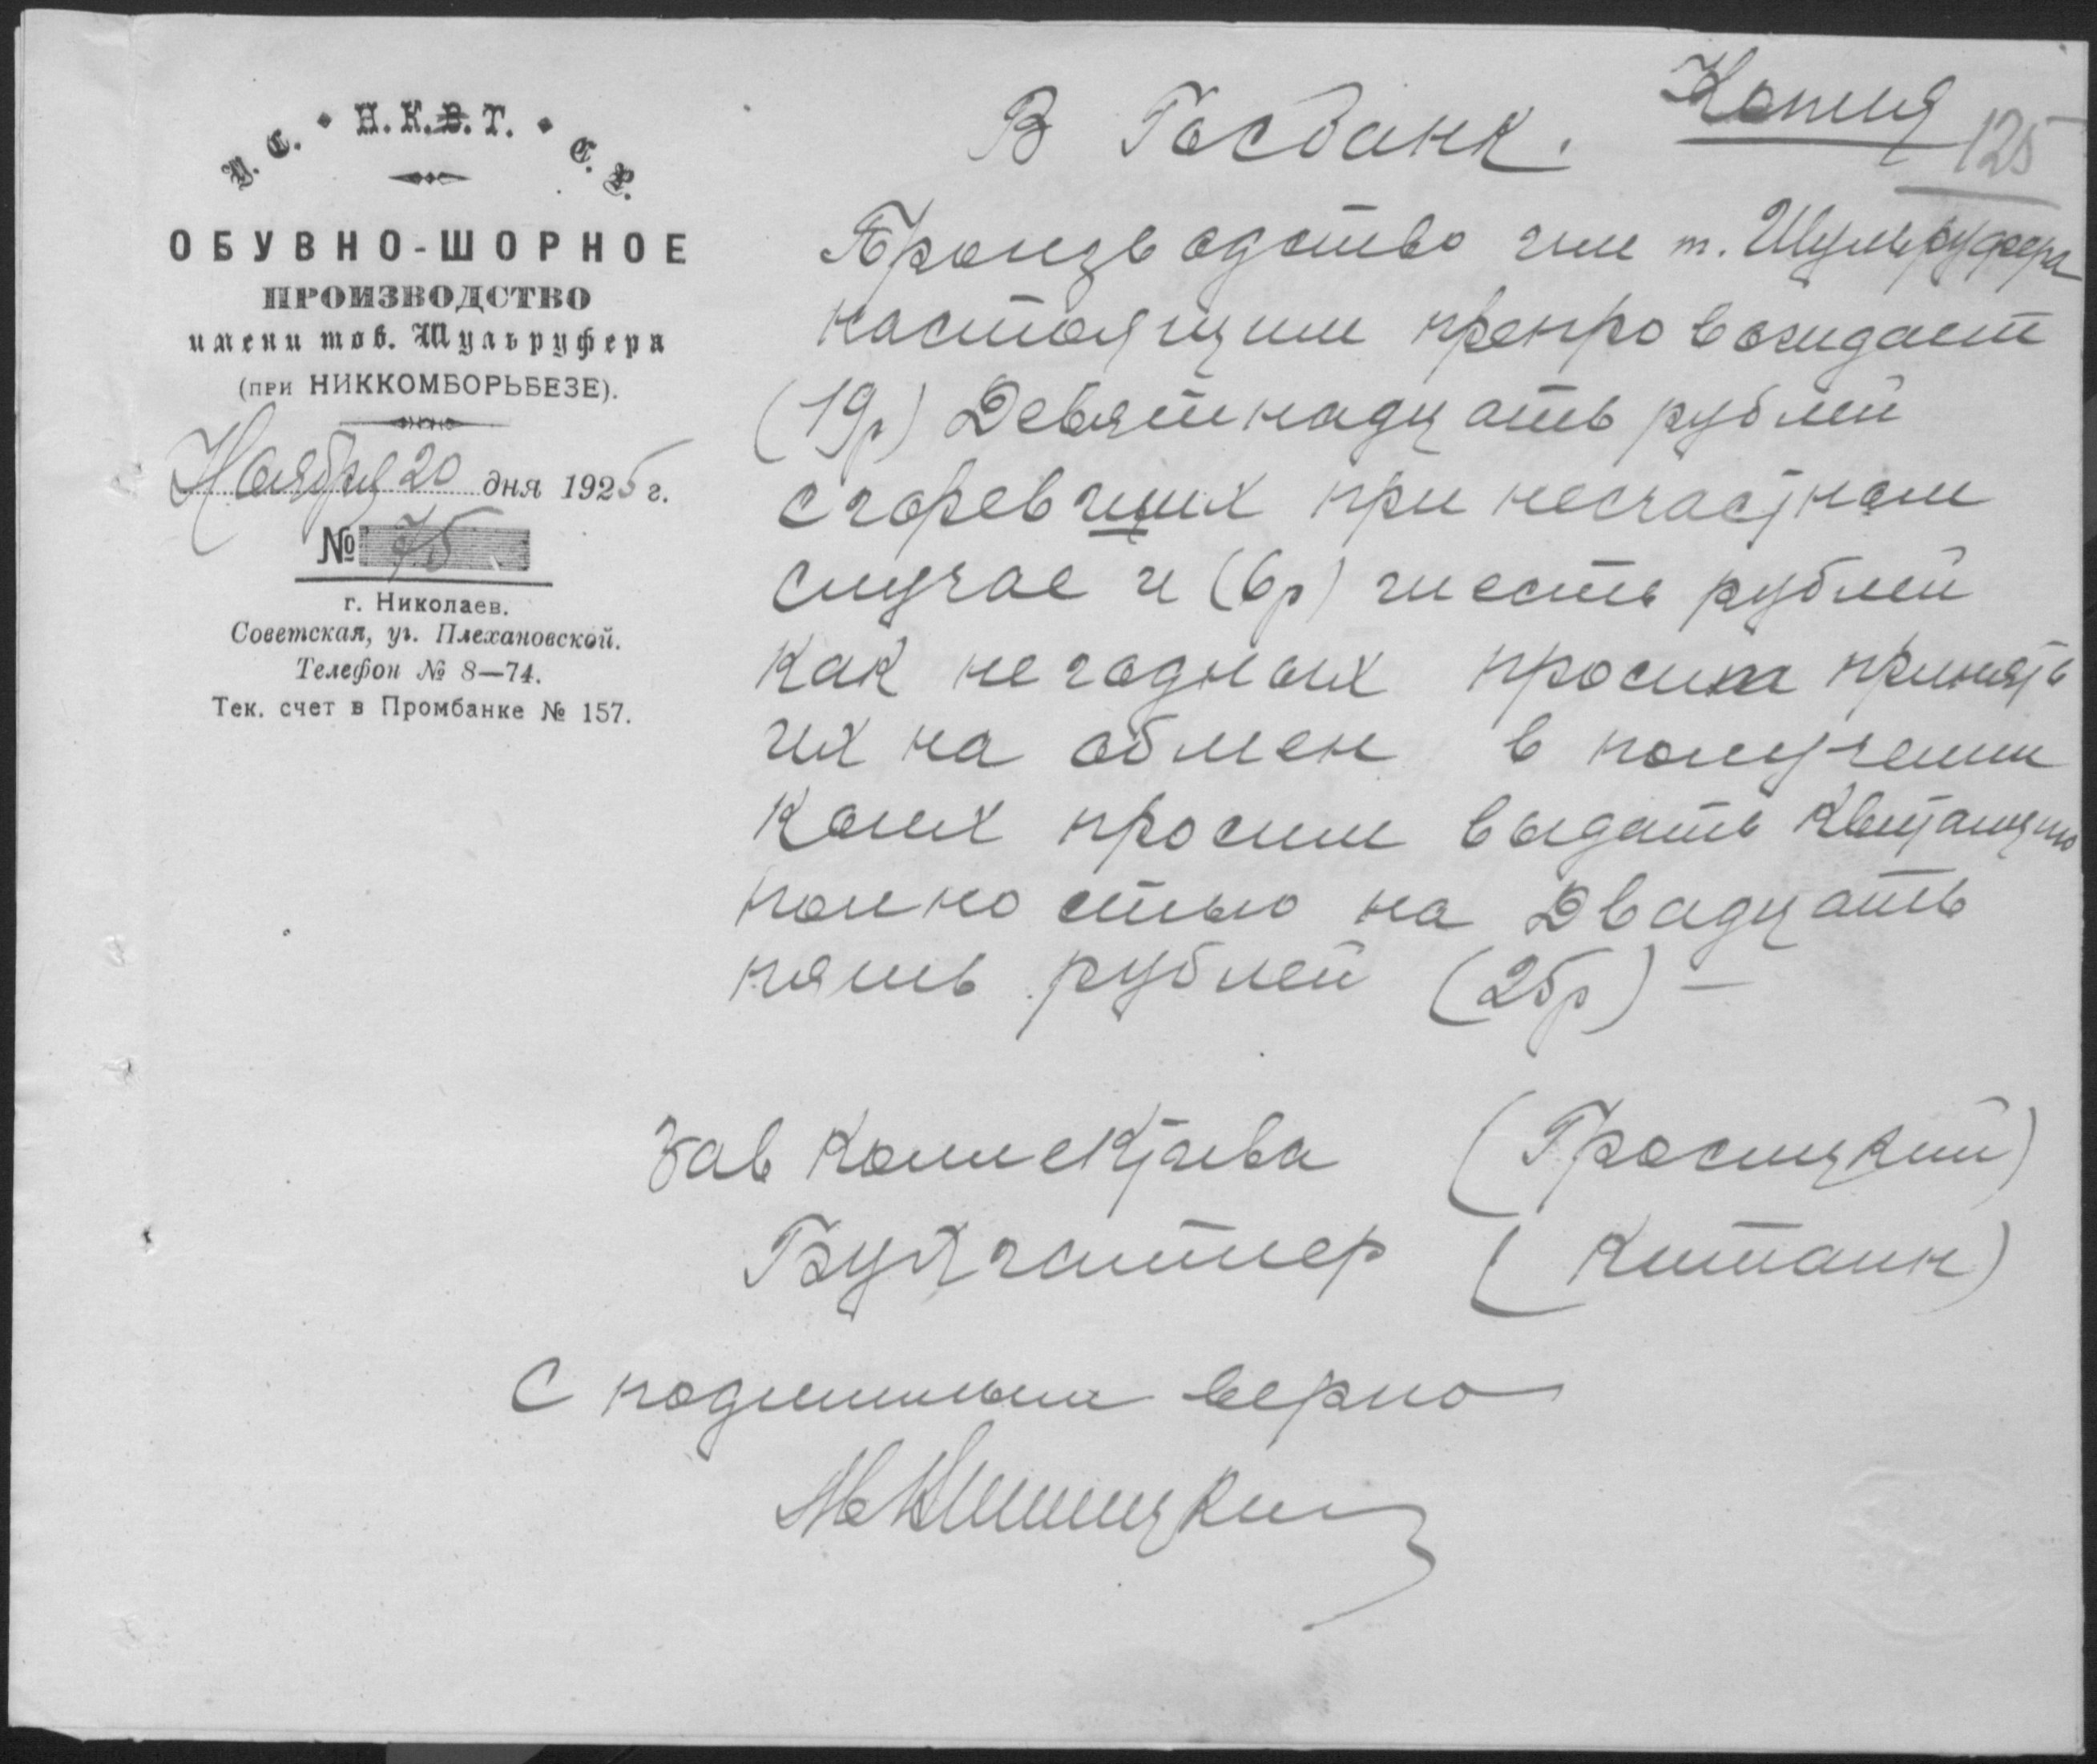 У.С. Н.К.В.Т. С.Р.
ОБУВНО-ШОРНОЕ
ПРОИЗВОДСТВО
имени тов. Шульруфера
(при НИККОМБОРЬБЕЗЕ).
Ноября 20 дня 1925 г.
№ 75
г. Николаев.
Советская, уг. Плехановской.
Телефон № 8—74.
Тек. счет в Промбанке № 157.
Копия
125
В Госбанк.
Производство им т. Шульруфера
настоящим препровождает
(19р) Девятнадцать рублей
сгоревших при несчастном
случае и (6р) шесть рублей
как негодных просит принять
их на обмен в получении
коих просим выдать квитанцию
полностью на Двадцать
пять рублей (25р) —
Зав Коллектива (Гросицкий)
Бухгалтер (Китаик)
С подлинным верно